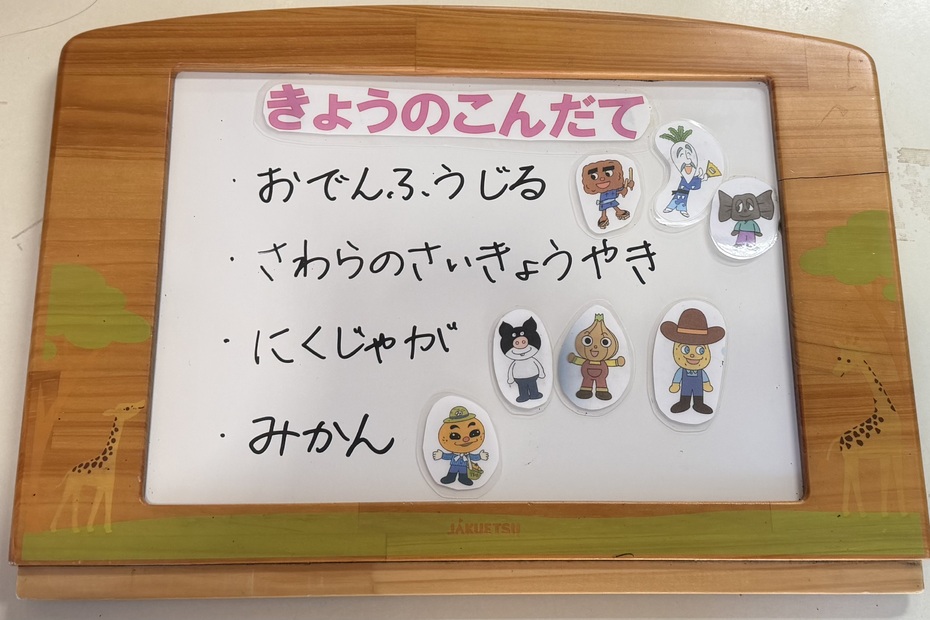 きょうのこんだて
・おでんふうじる
・さわらのさいきょうやき
・にくじゃが
・みかん
JAKUETSU